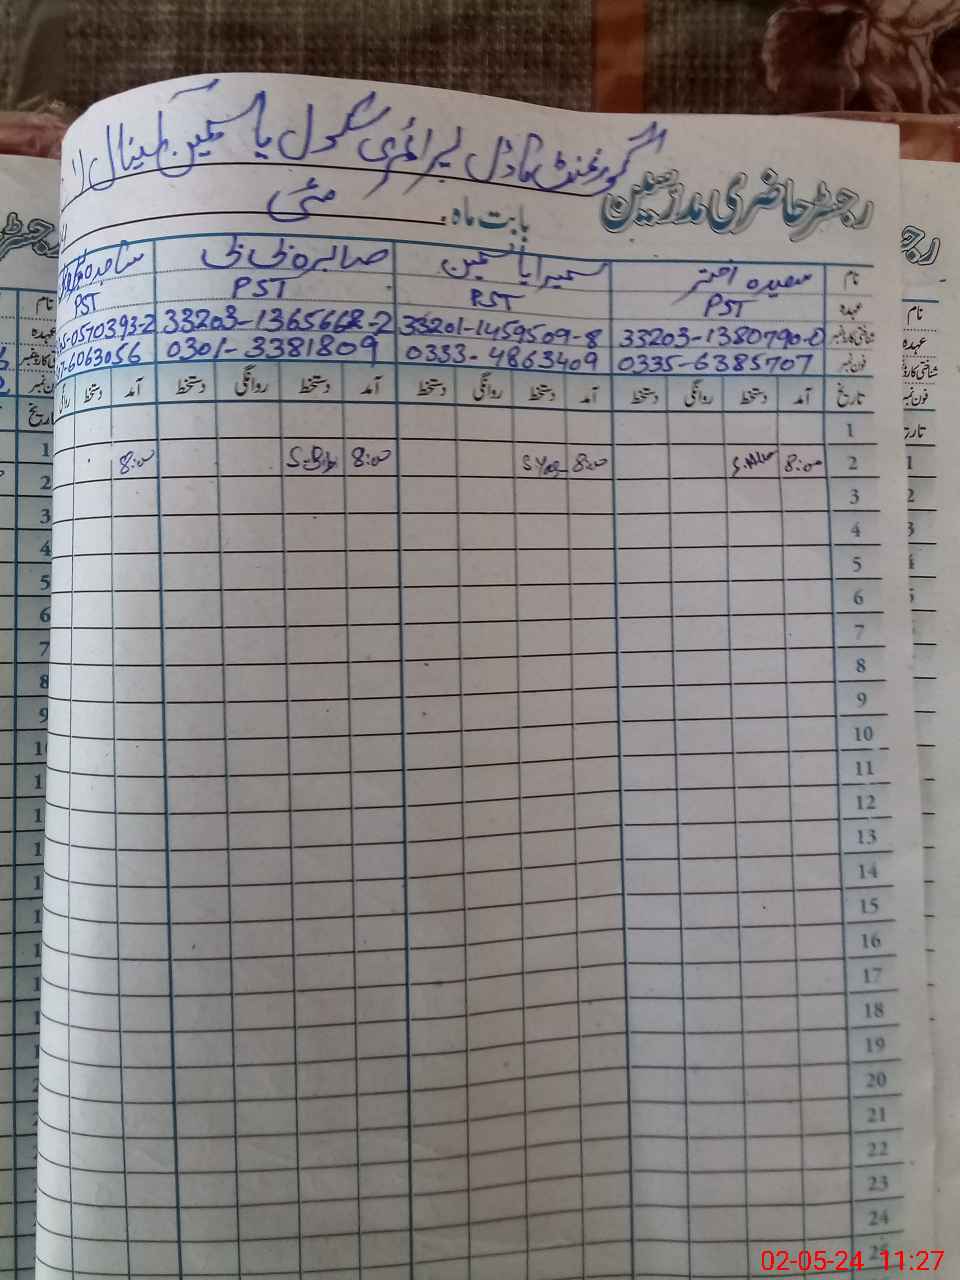 گورنمنٹ ماڈل پرائمری سکول یاسمین
رجسٹر حاضری مدرسین
بابت ماہ: مئی
نام سعیدہ اختر سمیرا یاسمین صابرہ بی بی ساجدہ
عہدہ PST PST PST PST
33203-1380790-0 33201-1459509-8 33203-1365668-2 0570393-2
فون نمبر 0335-6385707 0333-4863409 0301-3381809 6063056
تاریخ آمد دستخط روانگی دستخط آمد دستخط روانگی دستخط آمد دستخط روانگی دستخط آمد دستخط
1
2 8:00 8:00 8:00 8:00
3
4
5
6
7
8
9
10
11
12
13
14
15
16
17
18
19
20
21
22
23
24
25
02-05-24 11:27